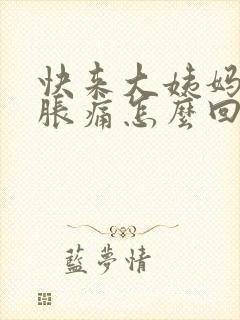 快来大姨妈
胀痛怎麼回
藍夢情